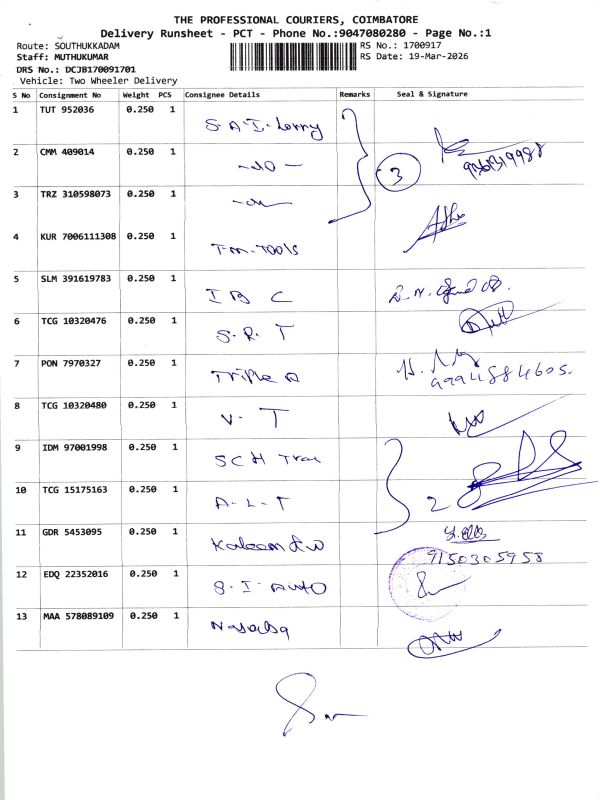 THE PROFESSIONAL COURIERS, COIMBATORE
Delivery Runsheet - PCT - Phone No.:9047080280 - Page No.:1
Route: SOUTHUKKADAM RS No.: 1700917
Staff: MUTHUKUMAR RS Date: 19-Mar-2026
DRS No.: DCJB170091701
Vehicle: Two Wheeler Delivery
S No Consignment No Weight PCS Consignee Details Remarks Seal & Signature
1 TUT 952036 0.250 1 S.A.I. Lorry
2 CMM 409014 0.250 1 -do- 3
3 TRZ 310598073 0.250 1
4 KUR 7006111308 0.250 1 T-M-TOOLS
5 SLM 391619783 0.250 1 I B C
6 TCG 10320476 0.250 1 S.R.T
7 PON 7970327 0.250 1 Triple A 9994884605.
8 TCG 10320480 0.250 1 V. T
9 IDM 97001998 0.250 1 SCH
10 TCG 15175163 0.250 1 A-L-T 2
11 GDR 5453095 0.250 1 Kaleem 9150305958
12 EDQ 22352016 0.250 1 S.I AUTO
13 MAA 578089109 0.250 1